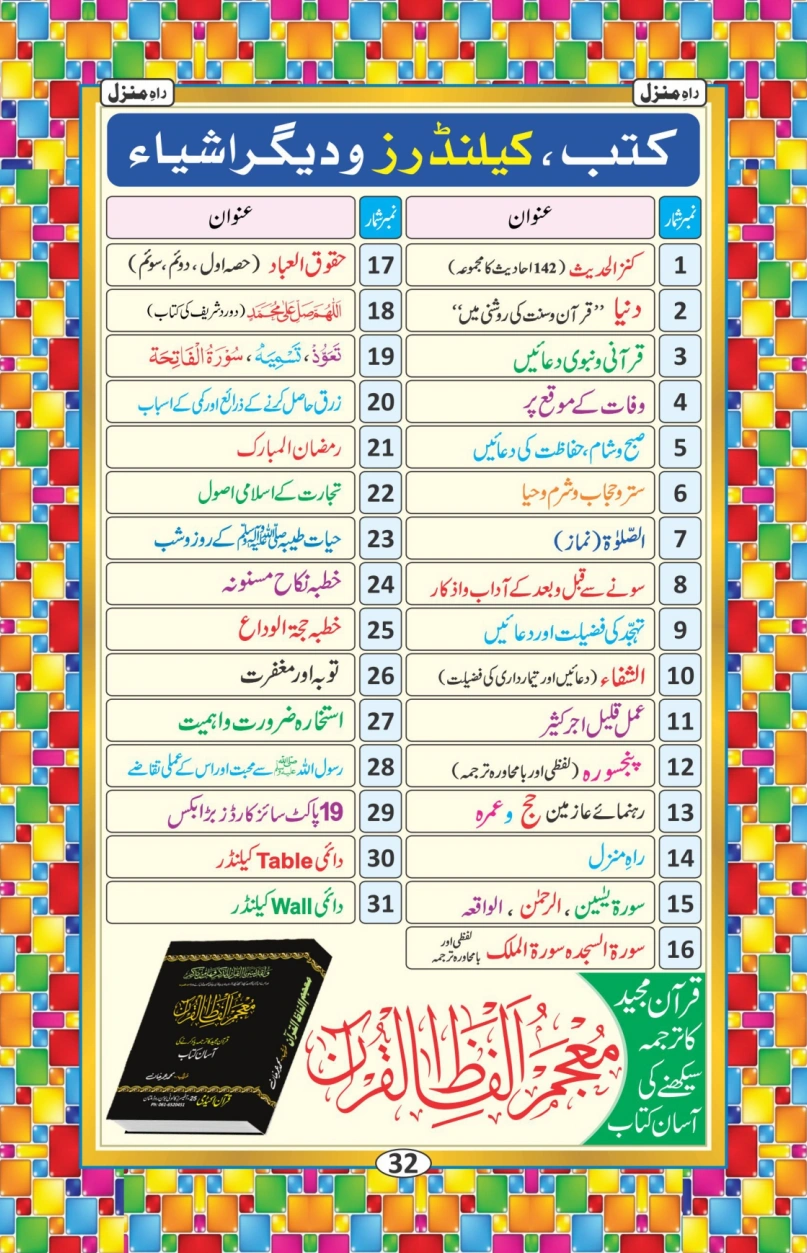 راہِ منزل
راہِ منزل
کتب، کیلنڈرز و دیگر اشیاء
نمبر شمار عنوان
1 کنز الحدیث (142 احادیث کا مجموعہ)
2 دنیا ”قرآن و سنت کی روشنی میں“
3 قرآنی و نبوی دعائیں
4 وفات کے موقع پر
5 صبح و شام، حفاظت کی دعائیں
6 ستر و حجاب و شرم و حیا
7 الصّلوٰۃ (نماز)
8 سونے سے قبل و بعد کے آداب و اذکار
9 تہجّد کی فضیلت اور دعائیں
10 الشفاء (دعائیں اور تیمارداری کی فضیلت)
11 عمل قلیل اجر کثیر
12 پنجسورہ (لفظی اور بامحاورہ ترجمہ)
13 رہنمائے عازمین حج و عمرہ
14 راہِ منزل
15 سورۃ یٰسین، الرحمٰن، الواقعہ
16 سورۃ السجدہ سورۃ الملک لفظی اور بامحاورہ ترجمہ
نمبر شمار عنوان
17 حقوق العباد (حصہ اول، دوئم، سوئم)
18 اَللّٰهُمَّ صَلِّ عَلٰی مُحَمَّدٍ (دورد شریف کی کتاب)
19 تَعَوُّذ، تَسْمِیَه، سُوْرَةُ الْفَاتِحَة
20 زرق حاصل کرنے کے ذرائع اور کمی کے اسباب
21 رمضان المبارک
22 تجارت کے اسلامی اصول
23 حیات طیبہ ﷺ کے روز و شب
24 خطبہ نکاح مسنونہ
25 خطبہ حجۃ الوداع
26 توبہ اور مغفرت
27 استخارہ ضرورت و اہمیت
28 رسول اللہ ﷺ سے محبت اور اس کے عملی تقاضے
29 19 پاکٹ سائز کارڈز بڑا بکس
30 دائمی Table کیلنڈر
31 دائمی Wall کیلنڈر
قرآن مجید
کا ترجمہ
سیکھنے کی
آسان کتاب
معجم الفاظ القرآن
معجم الفاظ القرآن
آسان کتاب
معجم الفاظ القرآن
32